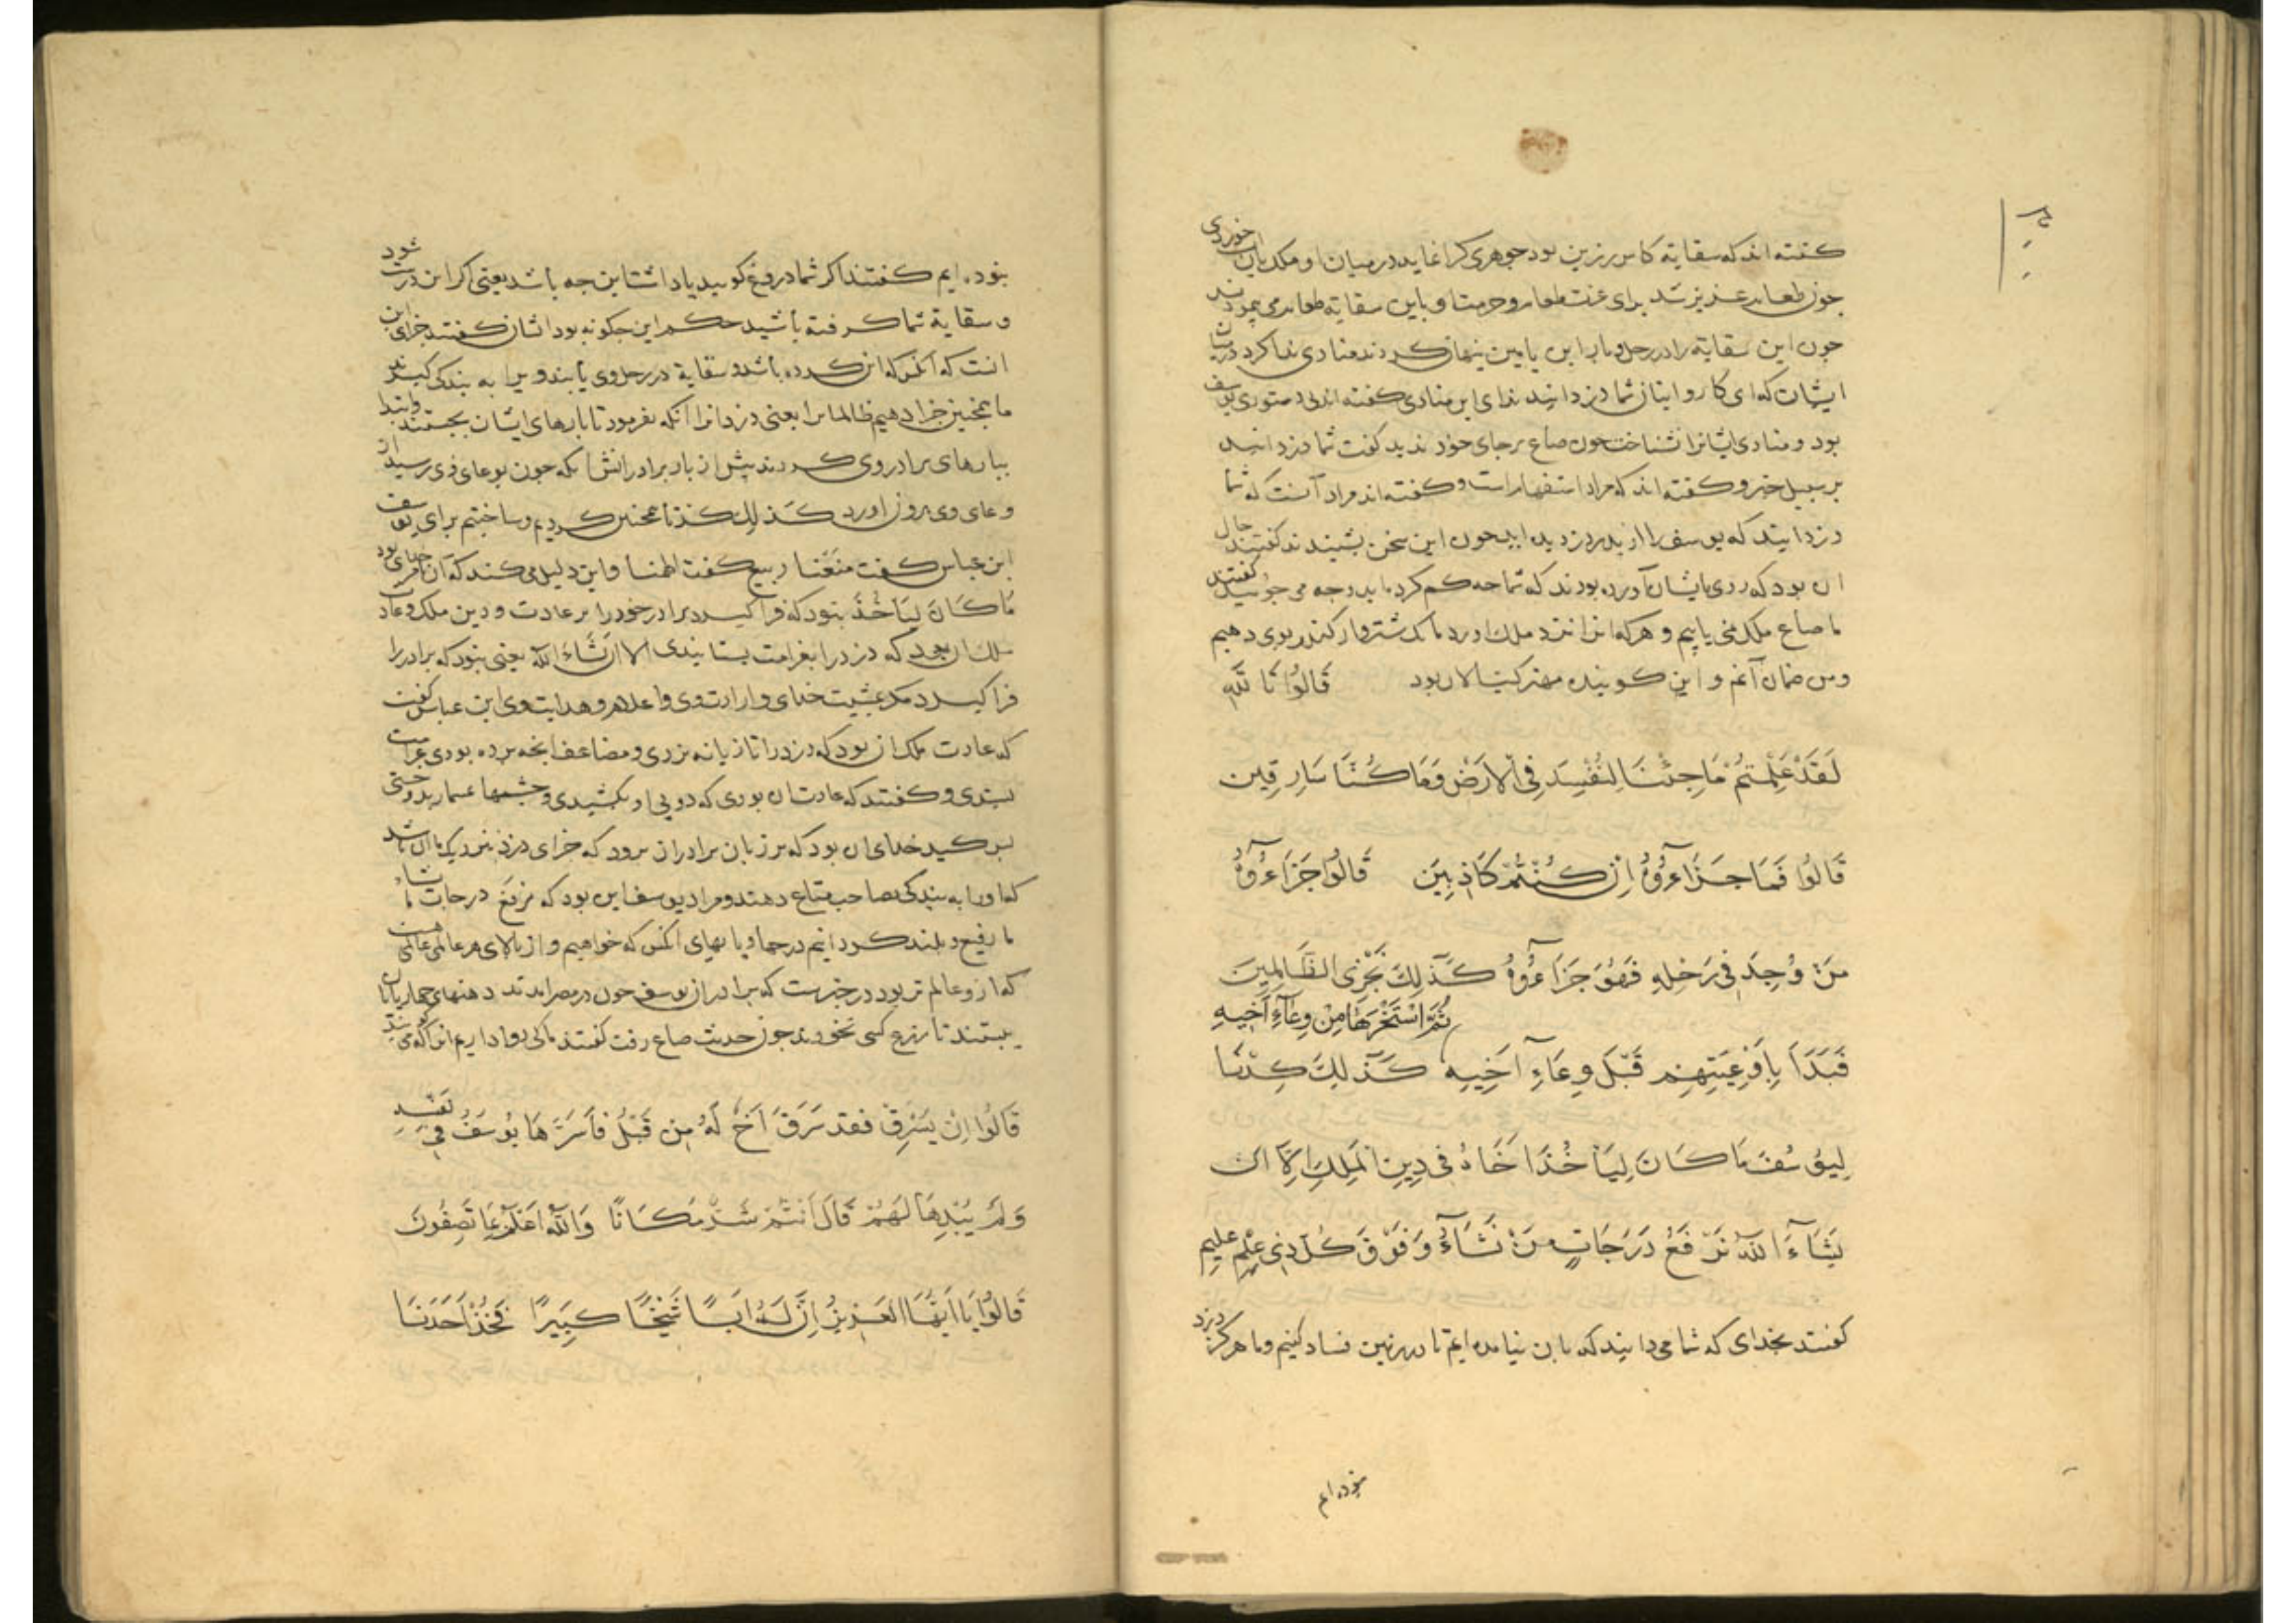 کفته اند که سقایة کاس زرین بود جوهری کرانمایه در میان او ملک بان خوردی
جون طعام عزیز شد برای عزت طعام و حرمت او باین سقایة طعام می پیمودند
جون این سقایة را در رحل و بار ابن یامین نهان کردند منادی ندا کرد در میان
ایشان که ای کاروانیان شما دزدانید ندای این منادی کفته اند بی دستوری یوسف
بود و منادی ایشانرا نشناخت جون صاع بر جای خود ندید کفت شما دزدانید
بر سبیل خبر و کفته اند که مراد استفهام است و کفته اند مراد آنست که شما
دزدانید که یوسف را از پدر دزدیده اید جون این سخن بشنیدند کفتند حال
ان بود که روی بایشان آورده بودند که شما جه کم کرده اید و جه می جوئید کفتند
ما صاع ملک نمی یابیم و هر که انرا نزد ملک اورد ما یک شتروار کندم بوی دهیم
و من ضمان آنم و این کوینده مهتر کیالان بود قَالُوا تَاللَّهِ
لَقَدْ عَلِمْتُمْ مَا جِئْنَا لِنُفْسِدَ فِی الْاَرْضِ وَمَا كُنَّا سَارِقِين
قَالُوا فَمَا جَزَآءُوهُ اِنْ كُنْتُمْ كَاذِبِينَ قَالُوا جَزَآءُوهُ
مَنْ وُجِدَ فِی رَحْلِهِ فَهُوَ جَزَآءُوهُ كَذٰلِكَ نَجْزِی الظَّالِمِينَ
فَبَدَاَ بِاَوْعِيَتِهِمْ قَبْلَ وِعَآءِ اَخِيهِ ثُمَّ اسْتَخْرَجَهَا مِنْ وِعَآءِ اَخِيهِ كَذٰلِكَ كِدْنَا
لِيُوسُفَ مَا كَانَ لِيَاْخُذَ اَخَاهُ فِی دِينِ الْمَلِكِ اِلَّا اَنْ
يَشَآءَ اللّٰهُ نَرْفَعُ دَرَجَاتٍ مَنْ نَشَآءُ وَفَوْقَ كُلِّ ذِی عِلْمٍ عَلِيمٌ
کفتند بخدای که شما می دانید که ما بان نیامده ایم تا در زمین فساد کنیم و ما هرکز دزد
نبوده ایم
نبوده ایم کفتند اکر شما دروغ کویید پاداشتاین جه باشد یعنی اکر این درست شود
و سقایة شما کرفته باشید حکم این جکونه بود ایشان کفتند جزای این
انست که انکس که این کرده باشد و سقایة در رحل وی یابند ویرا به بندکی کیرند
ما همجنین جزا دهیم ظالمانرا یعنی دزدانرا آنکه بفرمود تا بارهای ایشان بجستند و ابتدا
ببارهای برادر وی کردند پیش از بار برادرانش آنکه جون بوعای وی رسید از
وعای وی بیرون اورد كَذٰلِكَ كِدْنَا همجنین کردیم و ساختیم برای یوسف
ابن عباس کفت صَنَعْنَا ربیع کفت الهمنا و این دلیل می کند که آن بامر خدای بود
مَا كَانَ لِيَاْخُذَ نبود که فرا کیرد برادر خود را بر عادت و دین ملک و عادت
ملک ان بود که دزد را بغرامت بستانیدی اِلَّا اَنْ يَشَآءَ اللّٰهُ یعنی نبود که برادر را
فرا کیرد مکر بمشیت خدای و ارادت وی و اعلام و هدایت وی ابن عباس کفت
که عادت ملک ان بود که دزد را تازیانه بزدی و مضاعف انجه برده بودی غرامت
ستدی و کفتند که عادت ان بودی که دو پی او بکشیدی و جشمها بمسمار بدوختی
پس کید خدای ان بود که بر زبان برادران برود که جزای دزد نزدیک ما ان باشد
که او را به بندکی بصاحب متاع دهند و مراد یوسف این بود که نَرْفَعُ دَرَجَاتٍ مَنْ نَشَآءُ
ما رفیع و بلند کردانیم درجها و پایهای انکس که خواهیم و از بالای هر عالمی عالمی هست
که از و عالم تر بود در خبرست که برادران یوسف جون در مصر امدند دهنهای جهارپایان
ببستند تا زرع کسی نخورند جون حدیث صاع رفت کفتند ما کی روا داریم
قَالُوا اِنْ يَسْرِقْ فَقَدْ سَرَقَ اَخٌ لَهُ مِنْ قَبْلُ فَاَسَرَّهَا يُوسُفُ فِی نَفْسِهِ
وَلَمْ يُبْدِهَا لَهُمْ قَالَ اَنْتُمْ شَرٌّ مَكَانًا وَاللّٰهُ اَعْلَمُ بِمَا تَصِفُونَ
قَالُوا يَا اَيُّهَا الْعَزِيزُ اِنَّ لَهُ اَبًا شَيْخًا كَبِيرًا فَخُذْ اَحَدَنَا